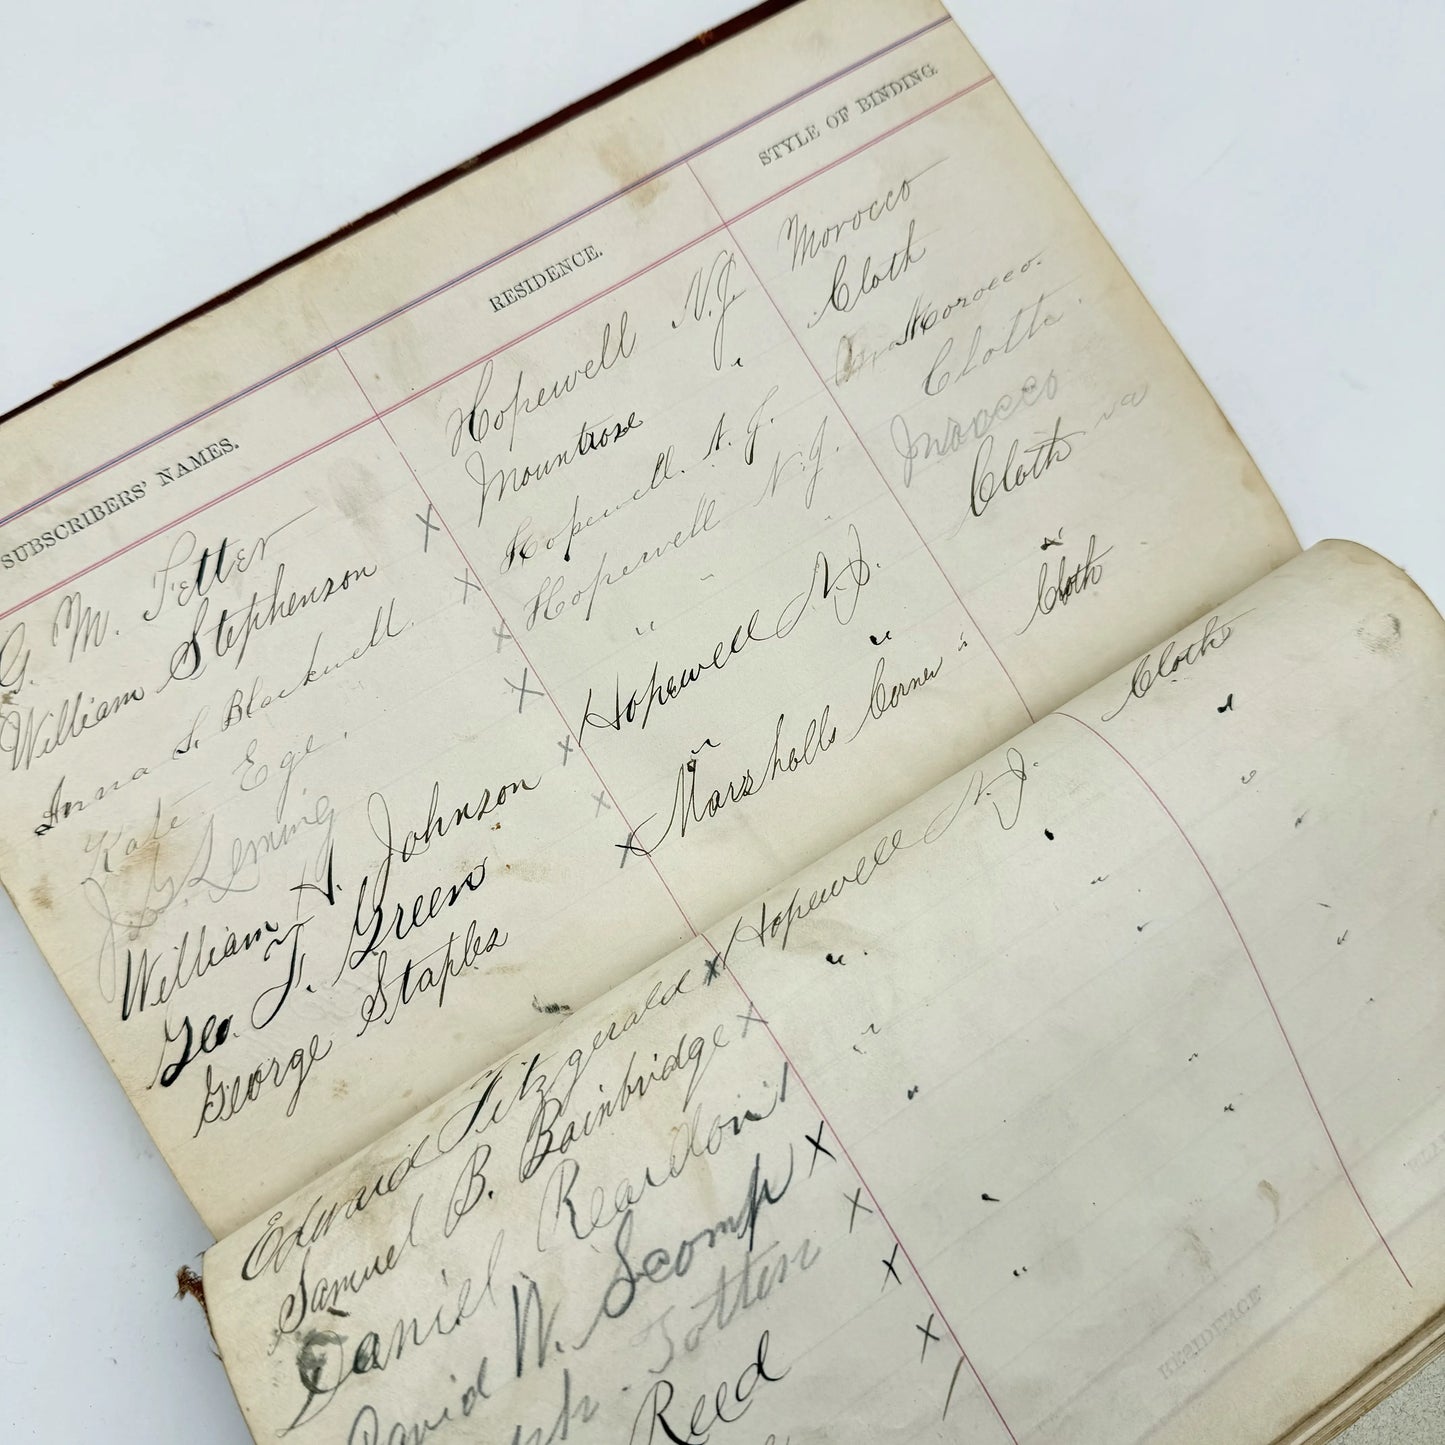 SUBSCRIBERS' NAMES. RESIDENCE. STYLE OF BINDING
G. M. Fetter Hopewell N.J. Morocco
William Stephenson Mountrose " Cloth
Anna S. Blackwell. Hopewell. N. J. Morocco.
Kate Ege. Hopewell N.J. Cloth.
J. G. Leming " " Morocco
William H. Johnson Hopewell N.J. Cloth
Geo. F. Green " "
George Staples Marshalls Corner " Cloth
Edward Fitzgerald Hopewell N.J. Cloth
Samuel B. Bainbridge " " "
Daniel Reardon " " "
David W. Scomp " " "
Totten
Reed
RESIDENCE